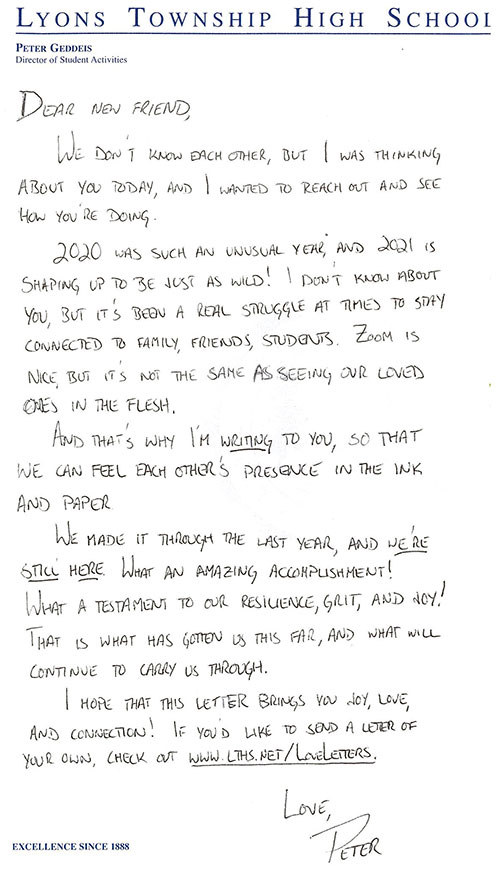 LYONS TOWNSHIP HIGH SCHOOL
PETER GEDDEIS
Director of Student Activities
DEAR NEW FRIEND,
WE DON'T KNOW EACH OTHER, BUT I WAS THINKING
ABOUT YOU TODAY, AND I WANTED TO REACH OUT AND SEE
HOW YOU'RE DOING.
2020 WAS SUCH AN UNUSUAL YEAR, AND 2021 IS
SHAPING UP TO BE JUST AS WILD! I DON'T KNOW ABOUT
YOU, BUT IT'S BEEN A REAL STRUGGLE AT TIMES TO STAY
CONNECTED TO FAMILY, FRIENDS, STUDENTS. ZOOM IS
NICE, BUT IT'S NOT THE SAME AS SEEING OUR LOVED
ONES IN THE FLESH.
AND THAT'S WHY I'M WRITING TO YOU, SO THAT
WE CAN FEEL EACH OTHER'S PRESENCE IN THE INK
AND PAPER.
WE MADE IT THROUGH THE LAST YEAR, AND WE'RE
STILL HERE. WHAT AN AMAZING ACCOMPLISHMENT!
WHAT A TESTAMENT TO OUR RESILIENCE, GRIT, AND JOY!
THAT IS WHAT HAS GOTTEN US THIS FAR, AND WHAT WILL
CONTINUE TO CARRY US THROUGH.
I HOPE THAT THIS LETTER BRINGS YOU JOY, LOVE,
AND CONNECTION! IF YOU'D LIKE TO SEND A LETER OF
YOUR OWN, CHECK OUT WWW.LTHS.NET/LOVELETTERS.
LOVE,
PETER
EXCELLENCE SINCE 1888